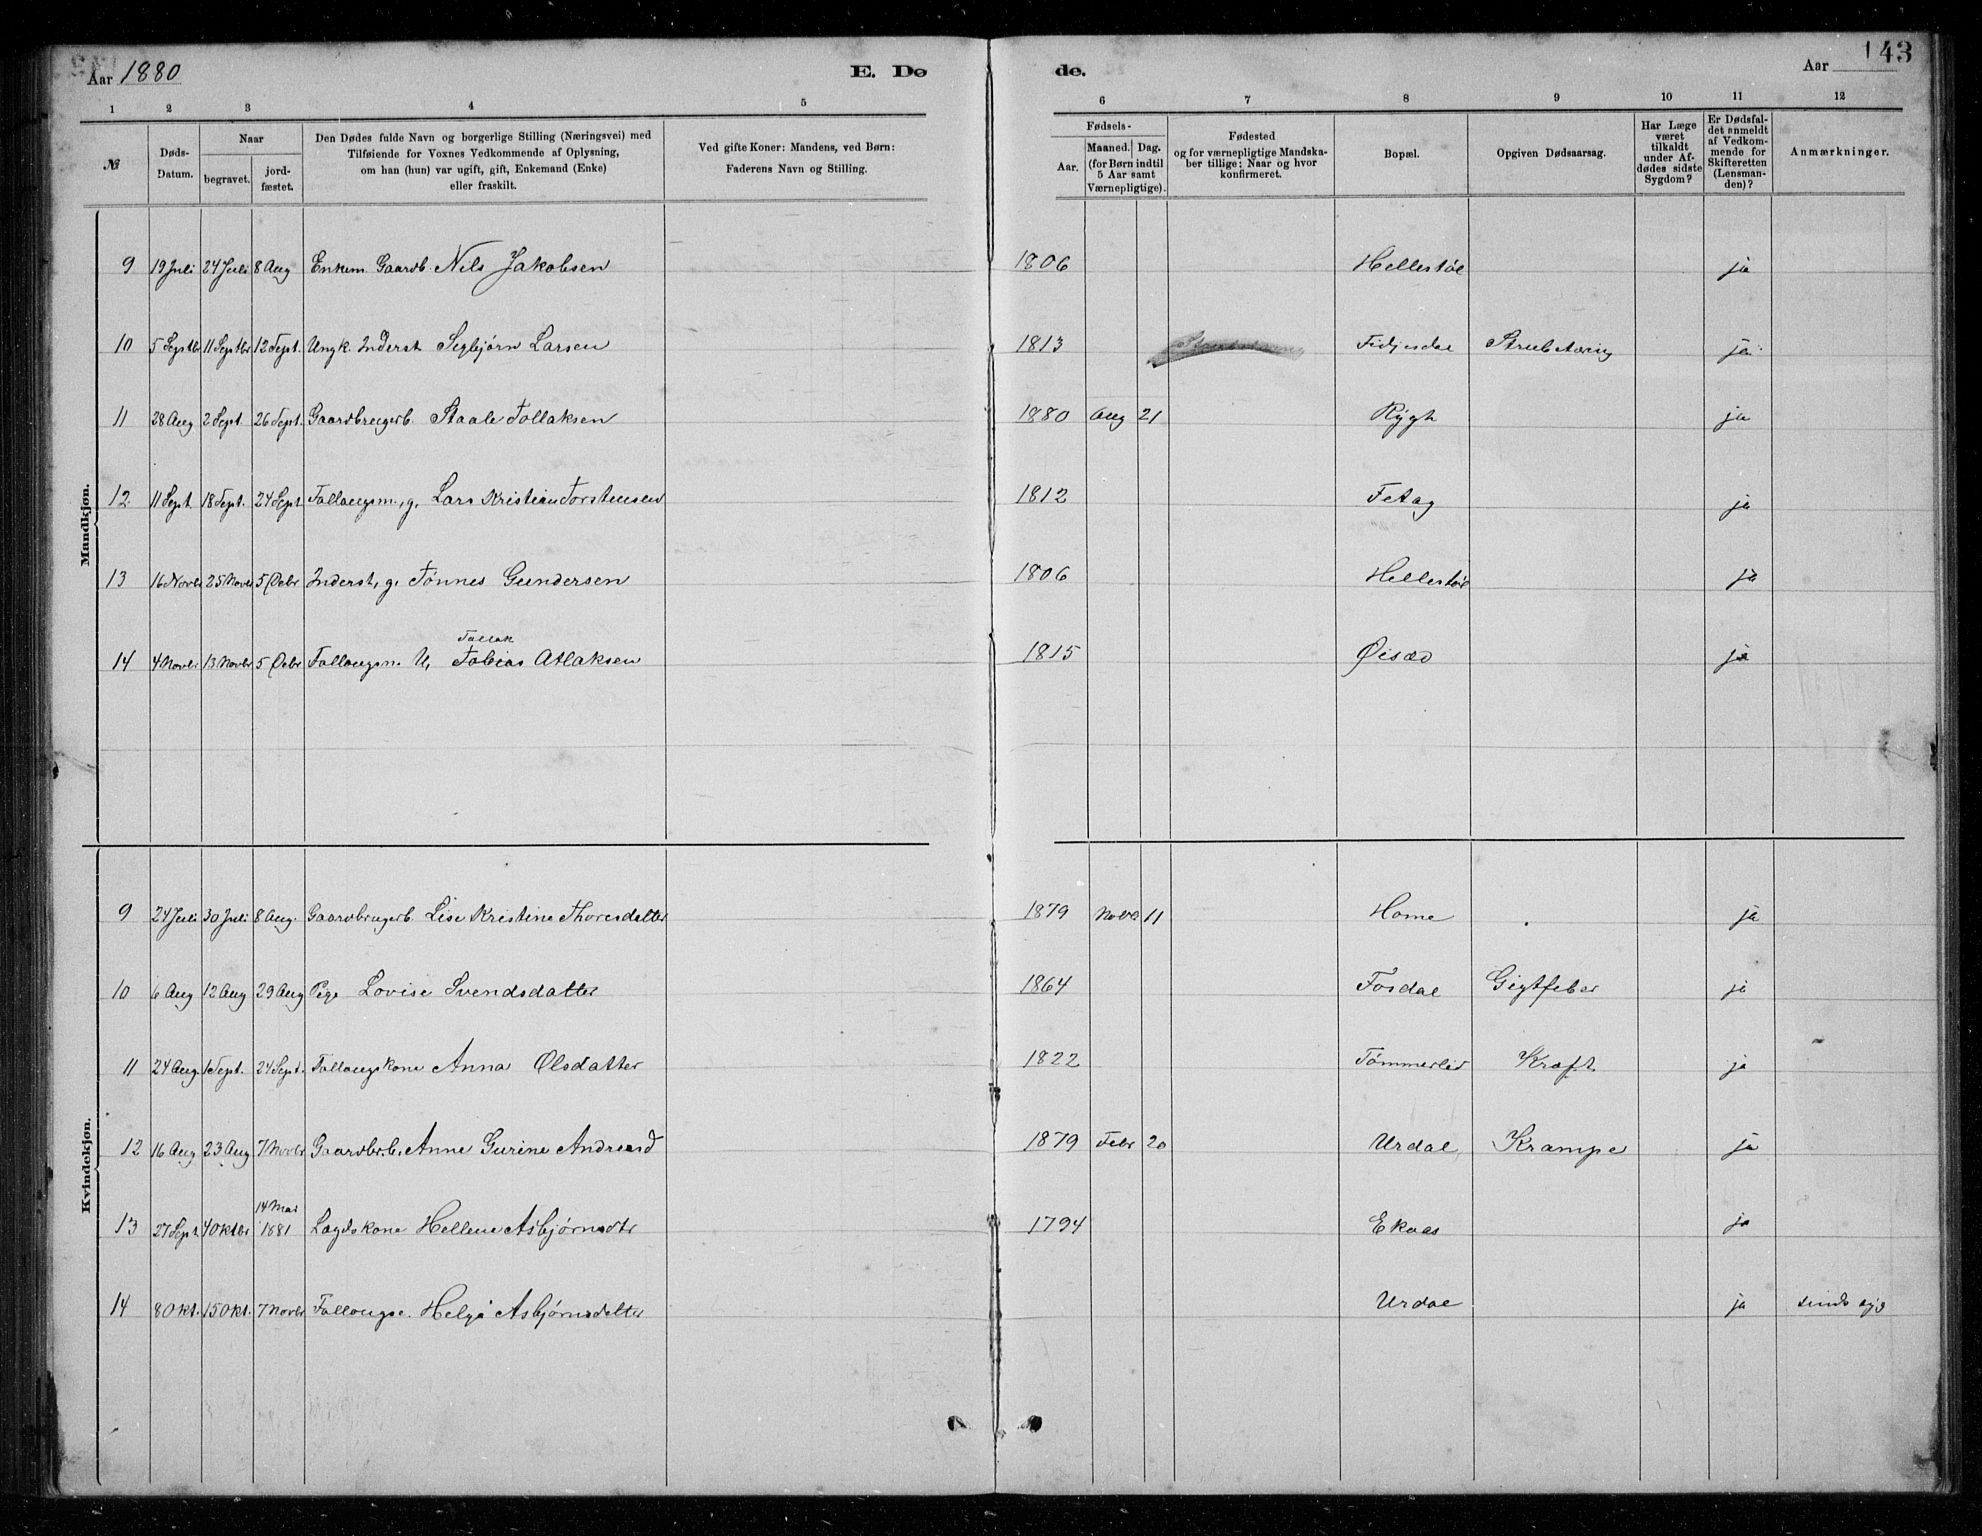 Aar 1880
E. Dø
de.
Aar
143
1 2 3 4 5 6 7 8 9 10 11 12
№
Døds-Datum.
Naar
begravet.
jordfæstet.
Den Dødes fulde Navn og borgerlige Stilling (Næringsvei) med
Tilføiende for Voxnes Vedkommende af Oplysning,
om han (hun) var ugift, gift, Enkemand (Enke)
eller fraskilt.
Ved gifte Koner: Mandens, ved Børn:
Faderens Navn og Stilling.
Fødsels-
Aar.
Maaned. Dag.
(for Børn indtil
5 Aar samt
Værnepligtige).
Fødested
og for værnepligtige Mandska-
ber tillige: Naar og hvor
konfirmeret.
Bopæl.
Opgiven Dødsaarsag.
Har Læge
været
tilkaldt
under Af-
dødes sidste
Sygdom?
Er Dødsfal-
det anmeldt
af Vedkom-
mende for
Skifteretten
(Lensman-
den)?
Anmærkninger.
Mandkjøn.
9 19 Juli 24 Juli 8 Aug Enkem. Gaardb. Nils Jakobsen 1806 Hellestøl ja
10 5 Septbr 11 Septbr 12 Sept. Ungk. Inderst Segbjørn Larsen 1813 Fidjesdal Strubetæring ja
11 28 Aug 2 Sept. 26 Sept. Gaardbrugerb. Staale Tollaksen 1880 Aug 21 Rygh ja
12 11 Sept. 18 Sept. 24 Sept Fallaugsm., g. Lars Kristian Torstensen 1812 Fetag ja
13 16 Novbr 25 Novbr 5 Debr Inderst, g. Tønnes Gundersen 1806 Hellestøl ja
Tallak
14 4 Novbr 13 Novbr 5 Debr Fallaugsm. U, Tobias Atlaksen 1815 Øisæd ja
Kvindekjøn.
9 24 Juli 30 Juli 8 Aug. Gaardbrugerb. Lise Kristine Thoresdatter 1879 Novbr 11 Home ja
10 6 Aug 12 Aug 29 Aug Pige Lovise Svendsdatter 1864 Fosdal Gigtfeber ja
11 24 Aug. 1 Sept. 24 Sept. Fallaugskone Anna Olsdatter 1822 Tømmerlid Kræft ja
12 16 Aug 23 Aug 7 Novbr Gaardbr.b. Anne Gurine Andreasd 1879 Febr 20 Urdal Krampe ja
13 27 Sept 4 Oktbr 14 Mai 1881 Lægdskone Hellene Asbjørnsdtr 1794 Ekaas ja
14 8 Okt. 15 Okt. 7 Novbr Fallaugse. Helga Asbjørnsdatter Urdal ja sindssyg